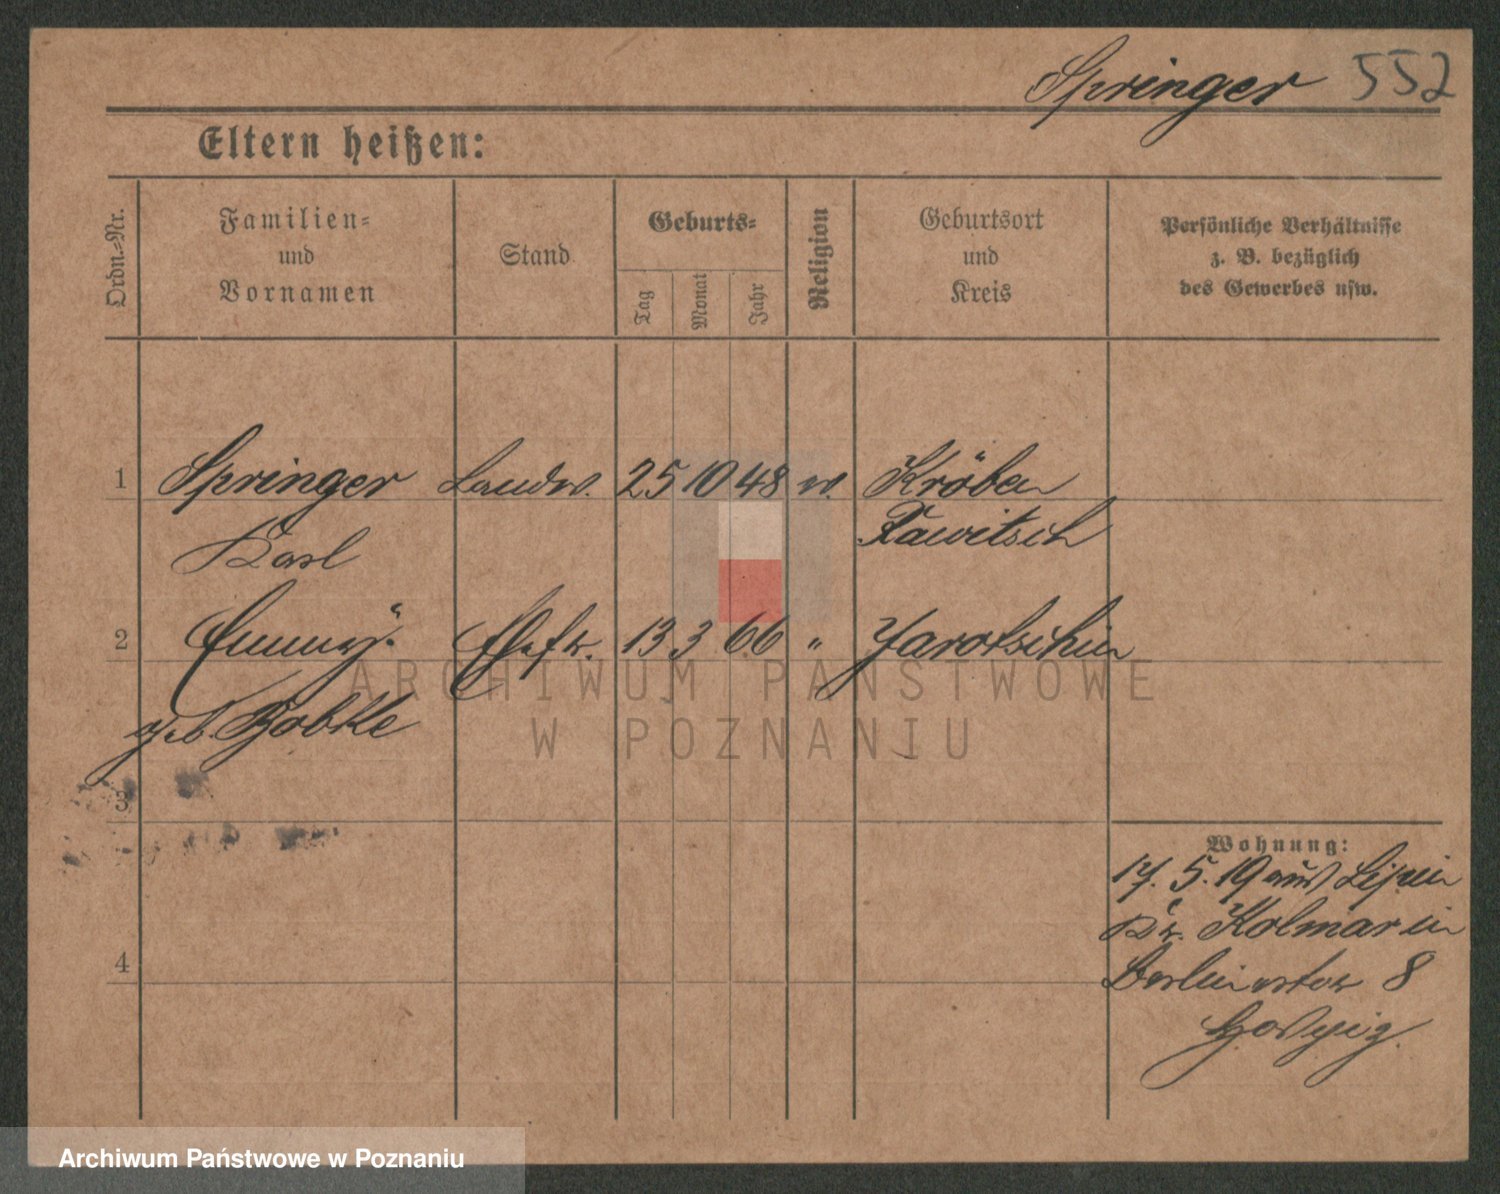 Springer 552
Eltern heißen:
Ordn.-Nr.
Familien-
und
Vornamen
Stand
Geburts-
Tag
Monat
Jahr
Religion
Geburtsort
und
Kreis
Persönliche Verhältnisse
z. B. bezüglich
des Gewerbes usw.
1 Springer Landw. 25 10 48 Kröben
Karl Rawitsch
2 Emmy Ehefr. 13 3 66 " Jarotschin
geb. Bobke
3
4
Wohnung:
17. 5. 19 aus Lipin
Kr. Kolmar in
Berlinerstr 8
ARCHIWUM PAŃSTWOWE
W POZNANIU
Archiwum Państwowe w Poznaniu